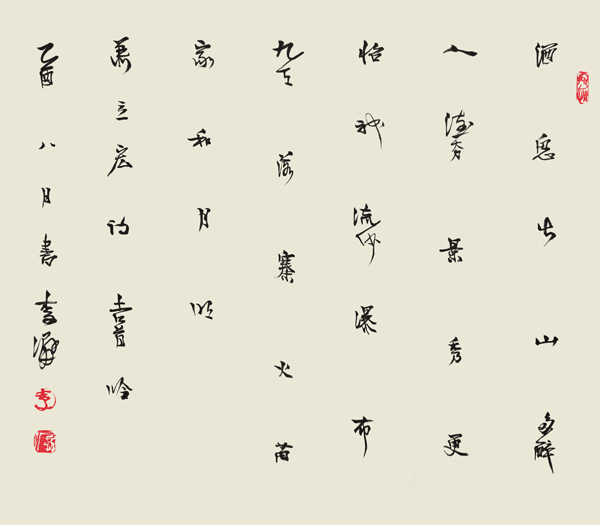 酒出山多醉
人德夯景秀更
怡神流沙瀑布
九天落寨火苗
家和月明
萧立宏访吉首吟
乙酉八月书李